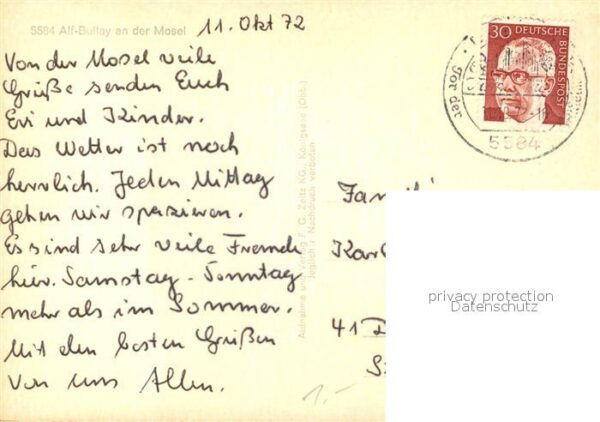 5584 Alf-Bullay an der Mosel
11. Okt 72
Von der Mosel veile
Grüße senden Euch
Evi und Kinder.
Das Wetter ist noch
herrlich. Jeden Mittag
gehen wir spazieren.
Es sind sehr veile Fremde
hier. Samstag - Sonntag
mehr als im Sommer.
Mit den besten Grüßen
Von uns Allen.
Aufnahme und Verlag F. G. Zeitz KG., Königssee (Obb.)
Jeglicher Nachdruck verboten
30 DEUTSCHE
BUNDESPOST
Tor der
5584
Fam
Karl
41 D
privacy protection
Datenschutz
1.-